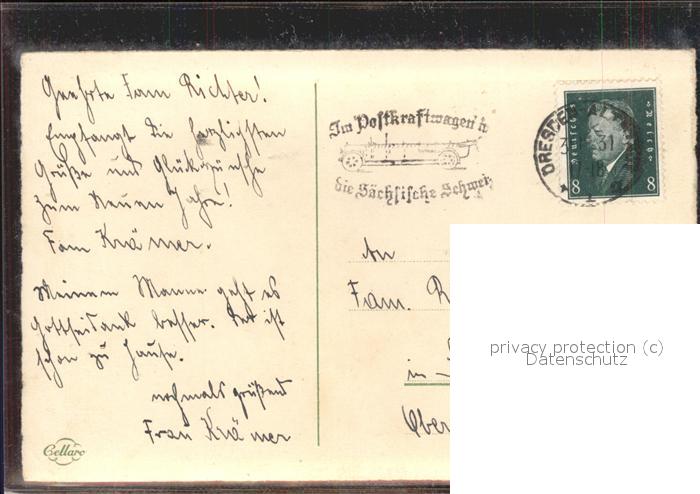 Geehrte Fam Richter!
Empfangt die herzlichsten
Grüße und Glückwünsche
zum Neuen Jahre!
Fam Krämer.
Meinem Manne geht es
Gottseidank besser. Er ist
schon zu Hause.
nochmals grüßend
Frau Krämer
Cellaro
Im Postkraftwagen in
die Sächsische Schweiz
DRESDEN-ALT
31
Deutsches Reich
8 8
An
Fam. R
in
Ober
privacy protection (c)
Datenschutz